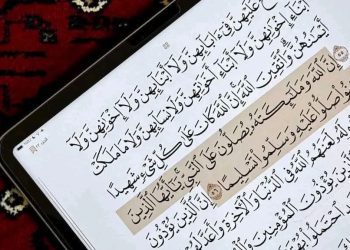 عَلَيْهِنَّ فِىٓ ءَابَآئِهِنَّ وَلَآ أَبْنَآئِهِنَّ وَلَآ إِخْوَٰنِهِنَّ وَلَآ
أَبْنَآءِ إِخْوَٰنِهِنَّ وَلَآ أَبْنَآءِ أَخَوَٰتِهِنَّ وَلَا نِسَآئِهِنَّ وَلَا مَا مَلَكَتْ
أَيْمَٰنُهُنَّ وَٱتَّقِينَ ٱللَّهَ إِنَّ ٱللَّهَ كَانَ عَلَىٰ كُلِّ شَىْءٍ شَهِيدًا
إِنَّ ٱللَّهَ وَمَلَٰٓئِكَتَهُۥ يُصَلُّونَ عَلَى ٱلنَّبِىِّ يَٰٓأَيُّهَا ٱلَّذِينَ
صَلُّوا۟ عَلَيْهِ وَسَلِّمُوا۟ تَسْلِيمًا ٥٦ إِنَّ ٱلَّذِينَ يُؤْذُونَ
لَعَنَهُمُ ٱللَّهُ فِى ٱلدُّنْيَا وَٱلْءَاخِرَةِ وَأَعَدَّ
يُؤْذُونَ ٱلْمُؤْمِنِينَ
ٱحْتَمَلُوا۟